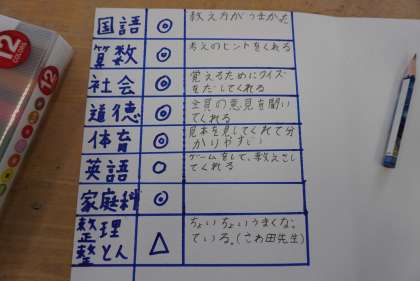 12
COLORS
国語 ◎ 教え方がうまかった
算数 ◎ 考えのヒントをくれる
社会 ◎ 覚えるためにクイズ
をだしてくれる
道徳 ◎ 全員の意見を聞い
てくれる
体育 ◎ 見本を見してくれて分
かりやすい
英語 ○ ゲームをして、教えて
してくれる
家庭科 ◎
整理
整とん △ ちょいちょいうまくなっ
ている。(さわ田先生)
12